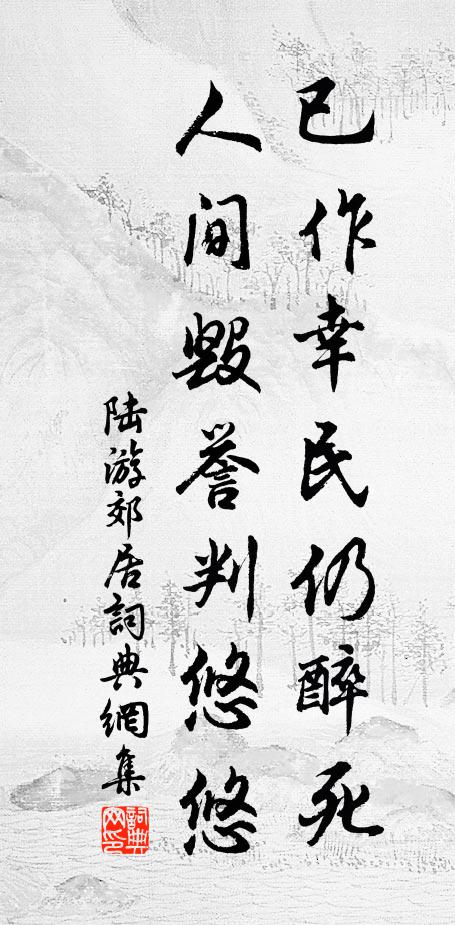 已作幸民仍醉死
人间毁誉判悠悠
陆游郊居詞典網集
詞典网印